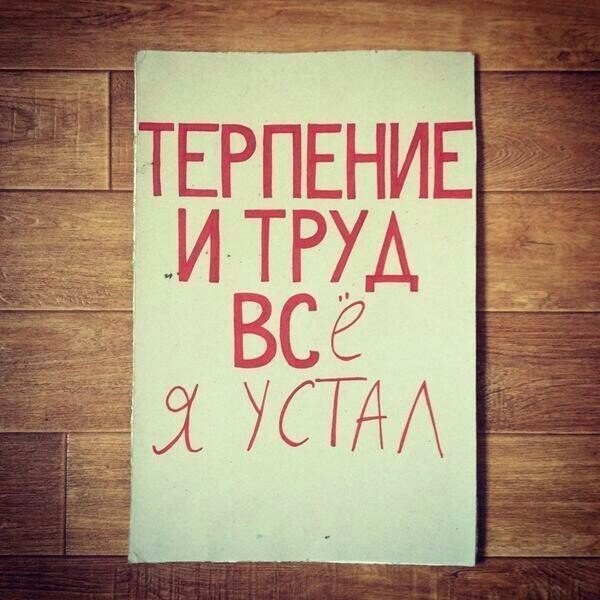 ТЕРПЕНИЕ
И ТРУД
ВСё
я УСТАЛ